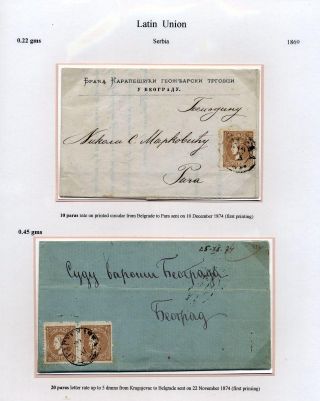 Latin Union
0.22 gms
Serbia
1869
У БЕОГРАДУ
Господину
Николи С. Марковићу
Рача
10 paras rate on printed circular from Belgrade to Para sent on 10 December 1874 (first printing)
0.45 gms
Суду вароши Београда
Београд
20 paras letter rate up to 5 drams from Kragujevac to Belgrade sent on 22 November 1874 (first printing)